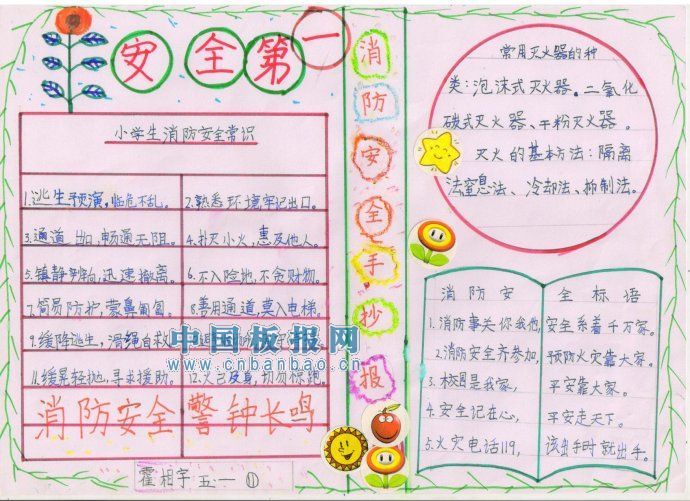 安全第一
小学生消防安全常识
1.逃生预演,临危不乱。
2.熟悉环境牢记出口。
3.通道出口,畅通无阻。
4.扑灭小火,惠及他人。
5.镇静向,迅速撤离。
6.不入险地,不贪财物。
7.简易防护,蒙鼻匍匐。
8.善用通道,莫入电梯。
9.缓降逃生,滑绳自救
11.缓晃轻抛,寻求援助。
12.火已及身,切勿惊跑。
消防安全 警钟长鸣
霍相宇 五一 ①
消防安全手抄报
常用灭火器的种
类:泡沫式灭火器。二氧化
碳式灭火器、干粉灭火器。
灭火的基本方法:隔离
法窒息法、冷却法、抑制法。
消防安全标语
1.消防事关你我他,安全系着千万家。
2.消防安全齐参加,预防火灾靠大家。
3.校园是我家,平安靠大家。
4.安全记在心,平安走天下。
5.火灾电话119,该出手时就出手。
中国板报网
www.cnbanbao.cn